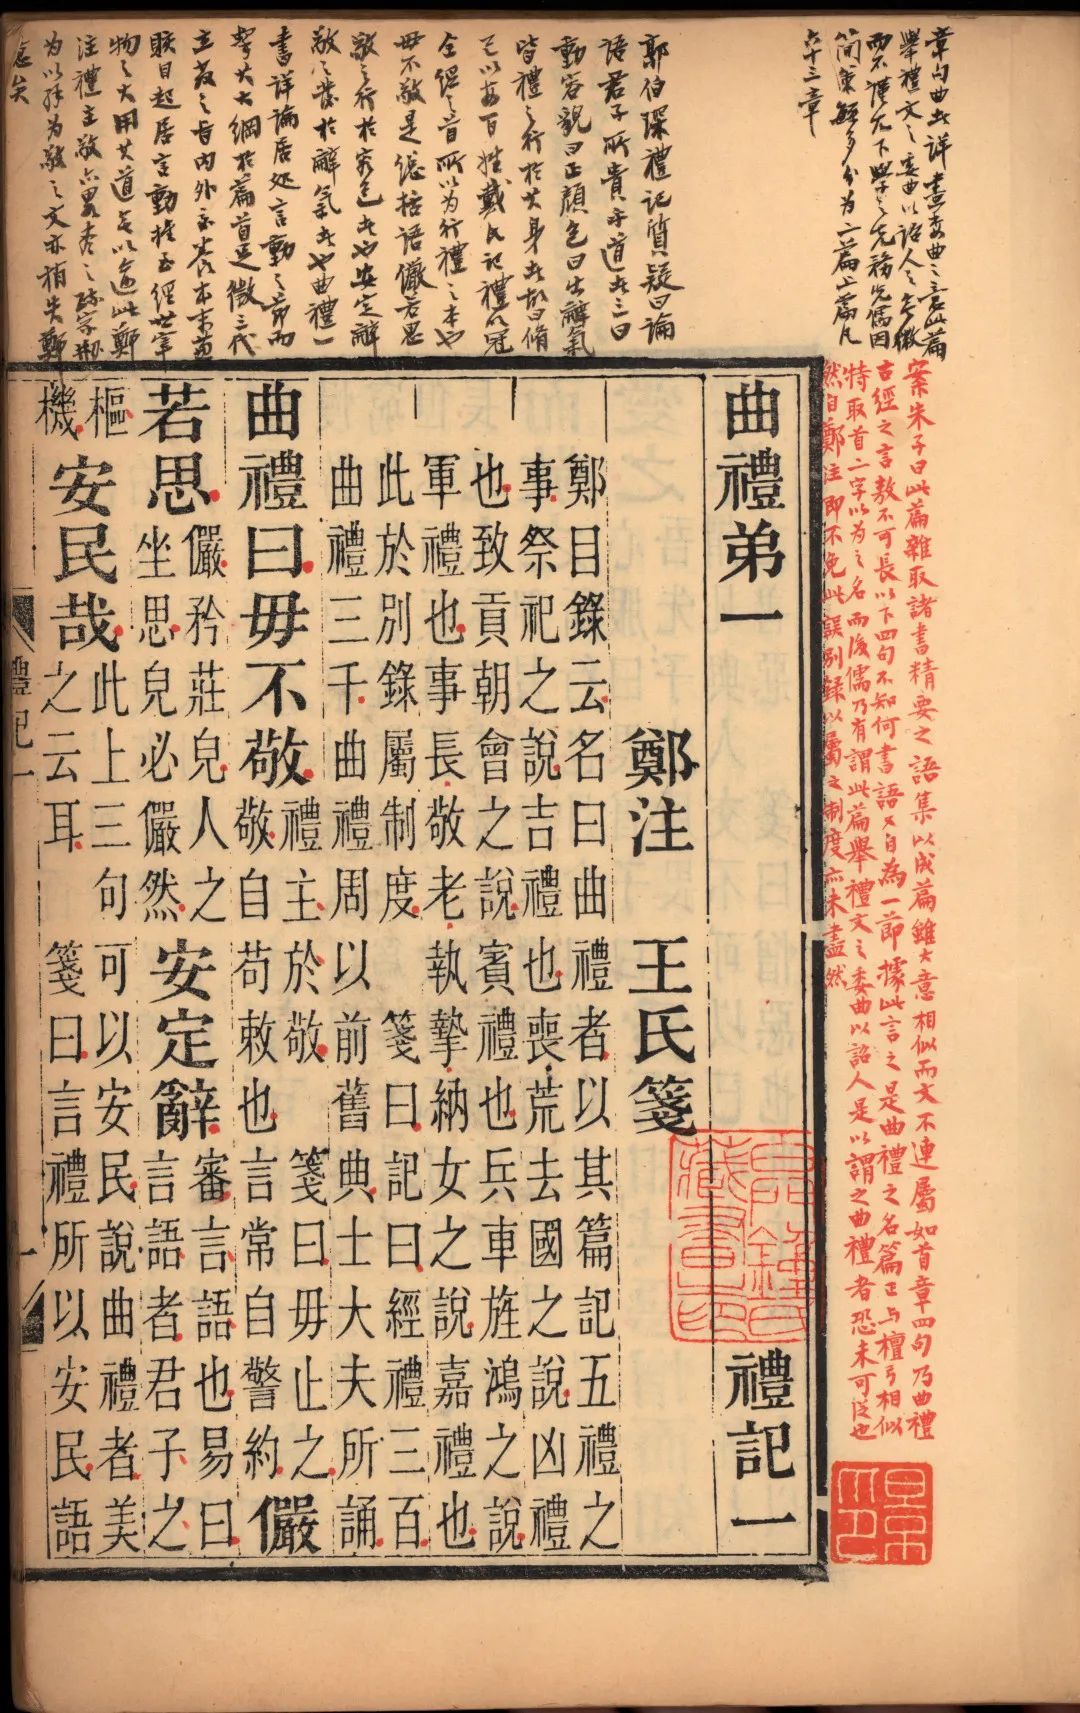 章句曲者詳盡委曲之意此篇
舉禮文之委曲以詔人之
而不謹尤下學之先務先儒因
簡策繁多分為二篇上篇凡
六十三章
郭伯琛禮記質疑曰論
語君子所貴乎道者三曰
動容貌曰正顏色曰出辭氣
皆禮之行於其身者故曰脩
己以安百姓戴氏記禮以冠
全經之首所以為行禮之本也
毋不敬是總括語儼若思
敬之行於容色者也安定辭
敬之發於辭氣者也曲禮一
書詳論居处言動之節而
挈其大綱於篇首足徵三代
立教之旨内外交養本末兼
賅自起居言動推至經世宰
物之大用其道無以逾此鄭
注禮主敬
為敬之文亦稍失鄭
意矣
案朱子曰此篇雜取諸書精要之語集以成篇雖大意相似而文不連屬如首章四句乃曲禮
古經之言敖不可長以下四句不知何書語又自為一節據此言之是曲禮之名篇正与檀弓相似
特取首二字以為之名而後儒乃有謂此篇舉禮文之委曲以詔人是以謂之曲禮者恐未可從也
然自鄭注即不免此誤別錄以屬之制度亦未盡然
曲禮弟一 禮記一
鄭注 王氏箋
鄭目錄云名曰曲禮者以其篇記五禮之
事祭祀之說吉禮也喪荒去國之說凶禮
也致貢朝會之說賓禮也兵車旌鴻之說
軍禮也事長敬老執摯納女之說嘉禮也
此於別錄屬制度 箋曰記曰經禮三百
曲禮三千曲禮周以前舊典士大夫所誦
曲禮曰毋不敬 禮主於敬 箋曰毋止之
敬自苟敕也言常自警約 儼
若思 儼矜莊皃人之
坐思皃必儼然 安定辭 審言語也易曰
言語者君子之
樞
機 安民哉 此上三句可以安民說曲禮者美
之云耳 箋曰言禮所以安民語
禮記一
一